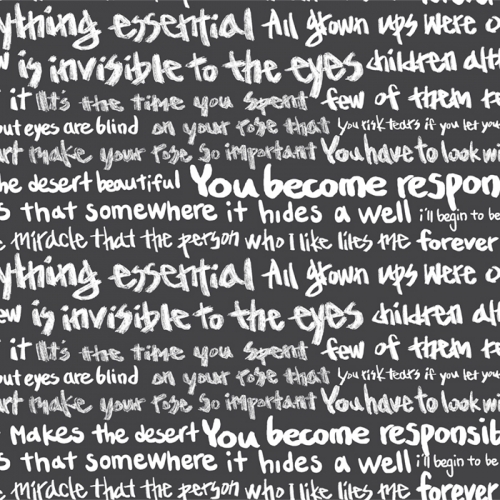 ything essential All grown ups were o
is invisible to the eyes children alt
it It's the time you spent few of them re
but eyes are blind on your rose that You risk tears if you let you
art make your rose so important You have to look wi
he desert beautiful You become respon
s that somewhere it hides a well i'll begin to be
miracle that the person who I like likes me forever
ything essential All grown ups were o
ew is invisible to the eyes children alt
it It's the time you spent few of them re
out eyes are blind on your rose that You risk tears if you let you
art make your rose so important You have to look wi
Makes the desert You become responsib
s that somewhere it hides a well i'll begin to be
miracle that the person who I like likes me forever